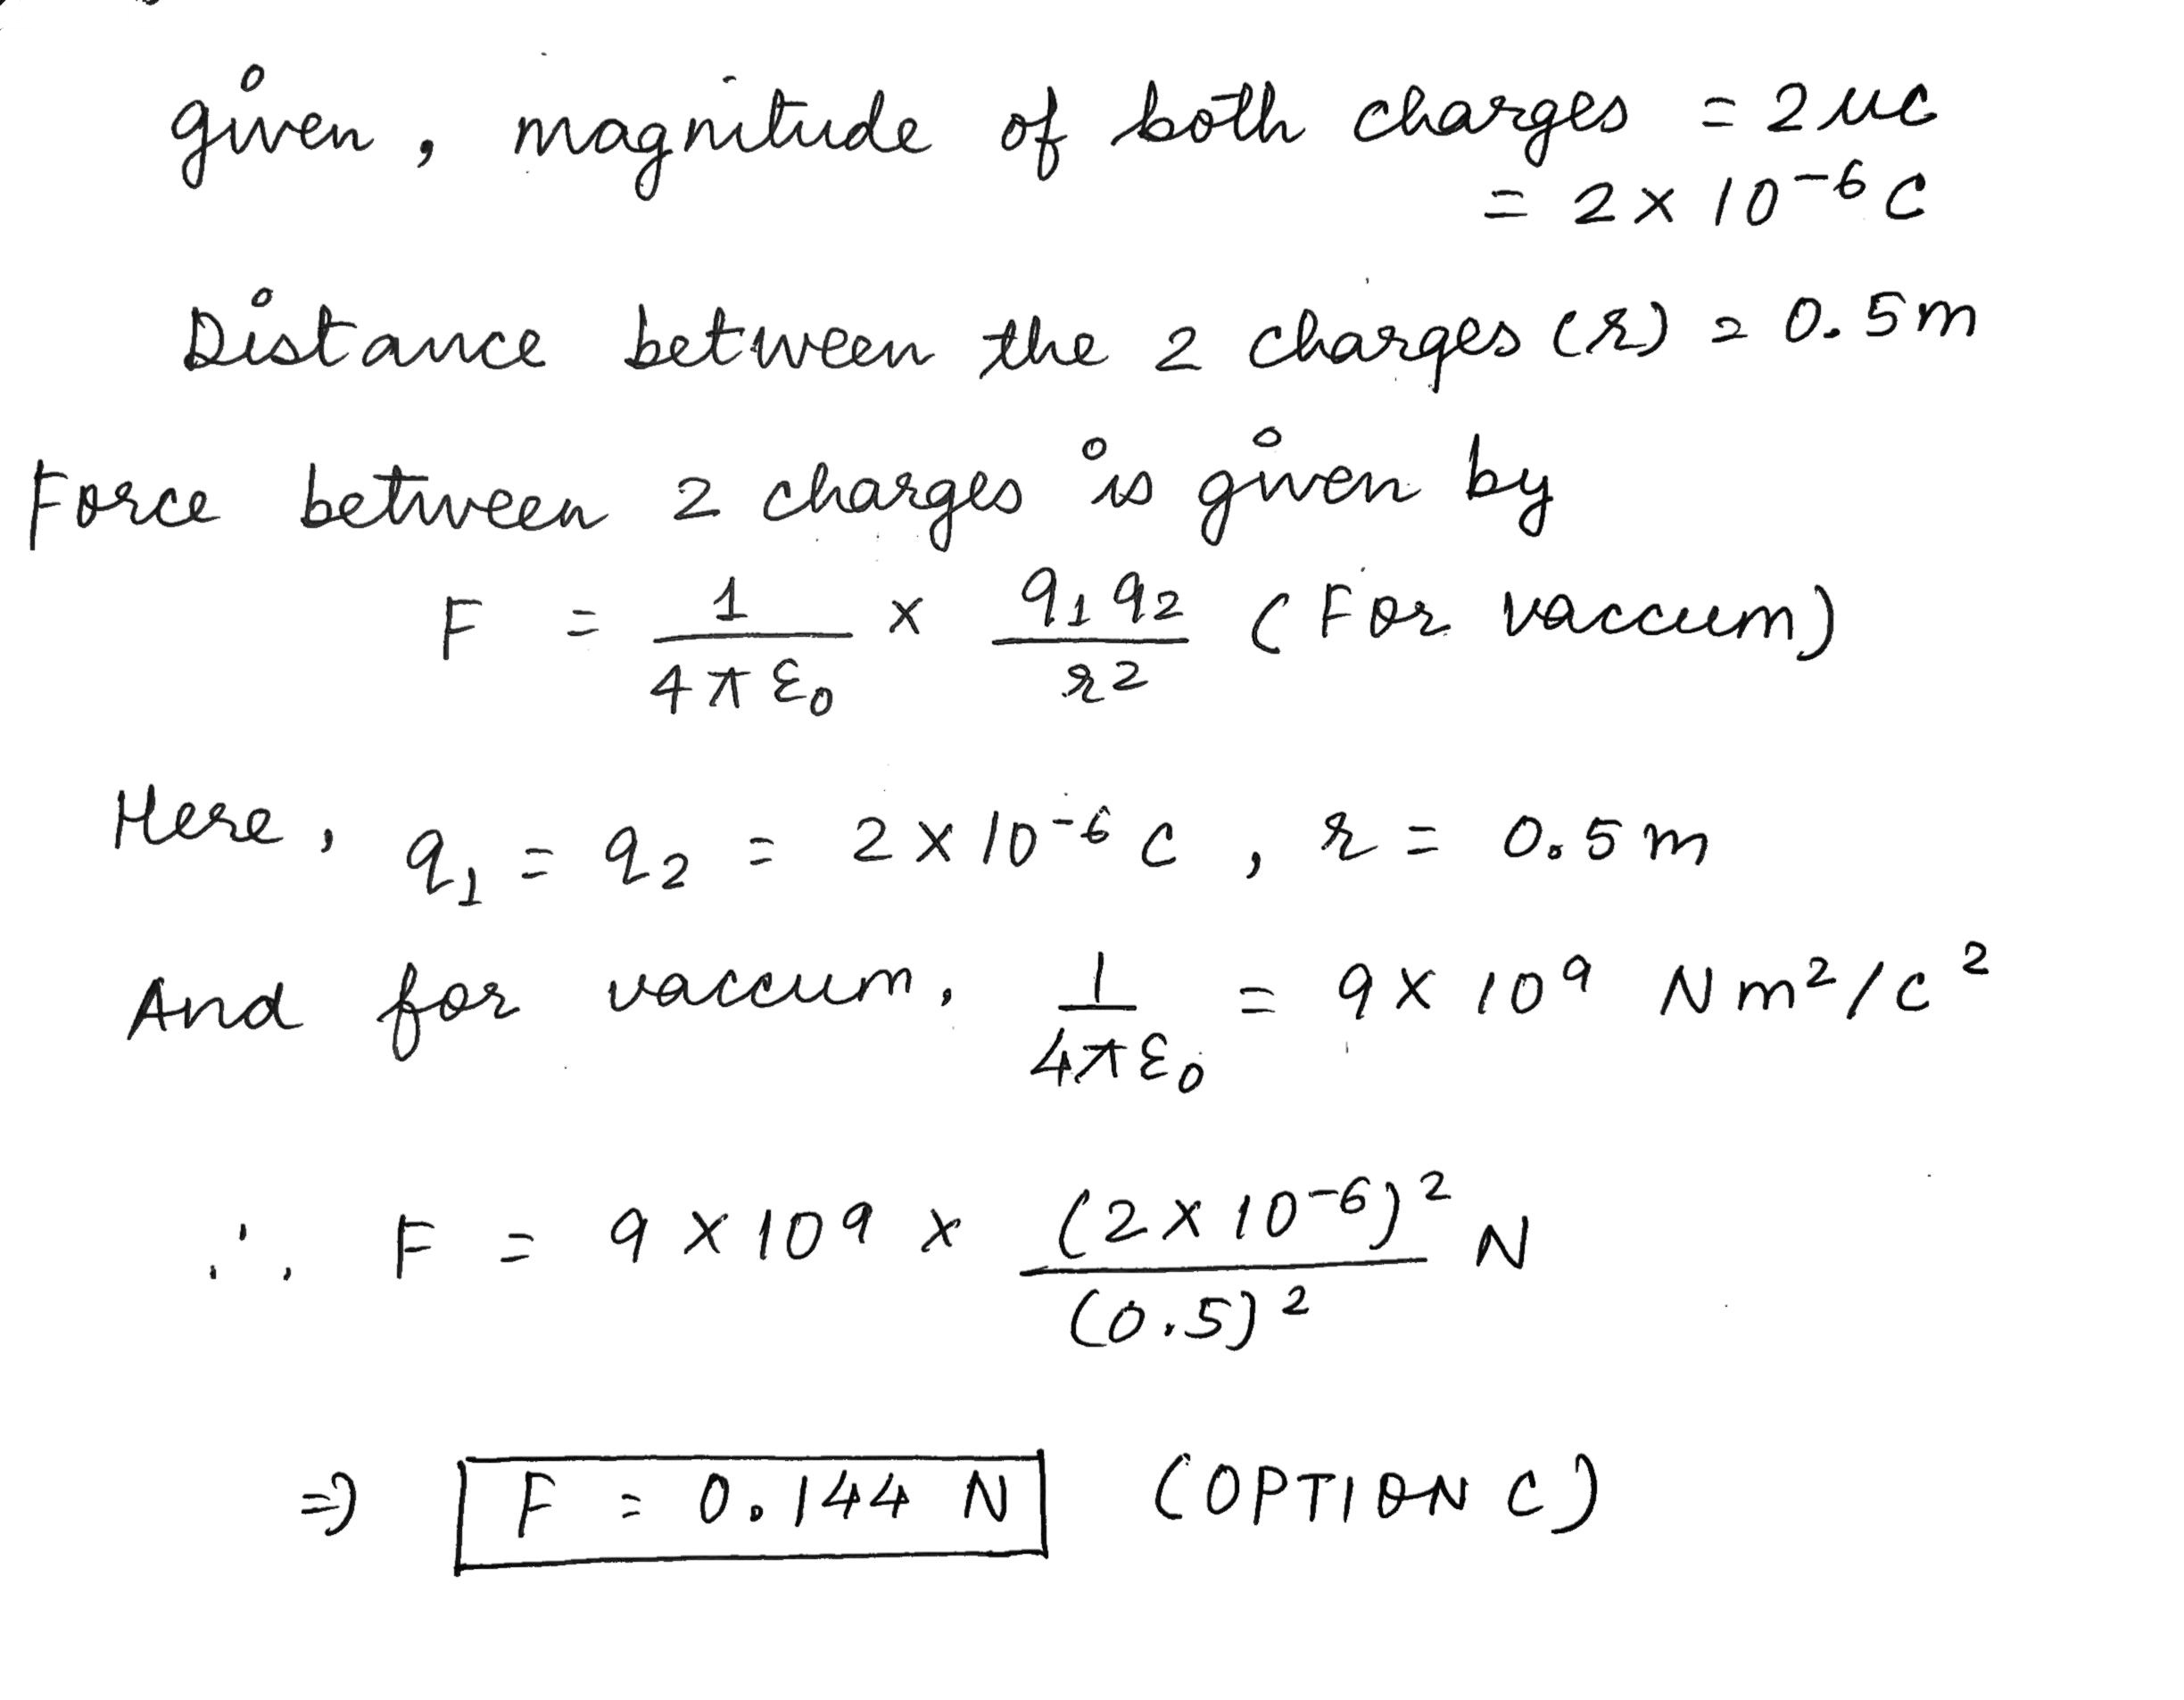 given, magnitude of both charges = 2 μC
= 2 × 10⁻⁶ C
Distance between the 2 charges (r) = 0.5m
Force between 2 charges is given by
F = 1/4πε₀ × q₁q₂/r² (For vaccum)
Here, q₁ = q₂ = 2 × 10⁻⁶ C, r = 0.5 m
And for vaccum, 1/4πε₀ = 9 × 10⁹ Nm²/C²
∴ F = 9 × 10⁹ × (2 × 10⁻⁶)²/(0.5)² N
⇒ F = 0.144 N (OPTION C)